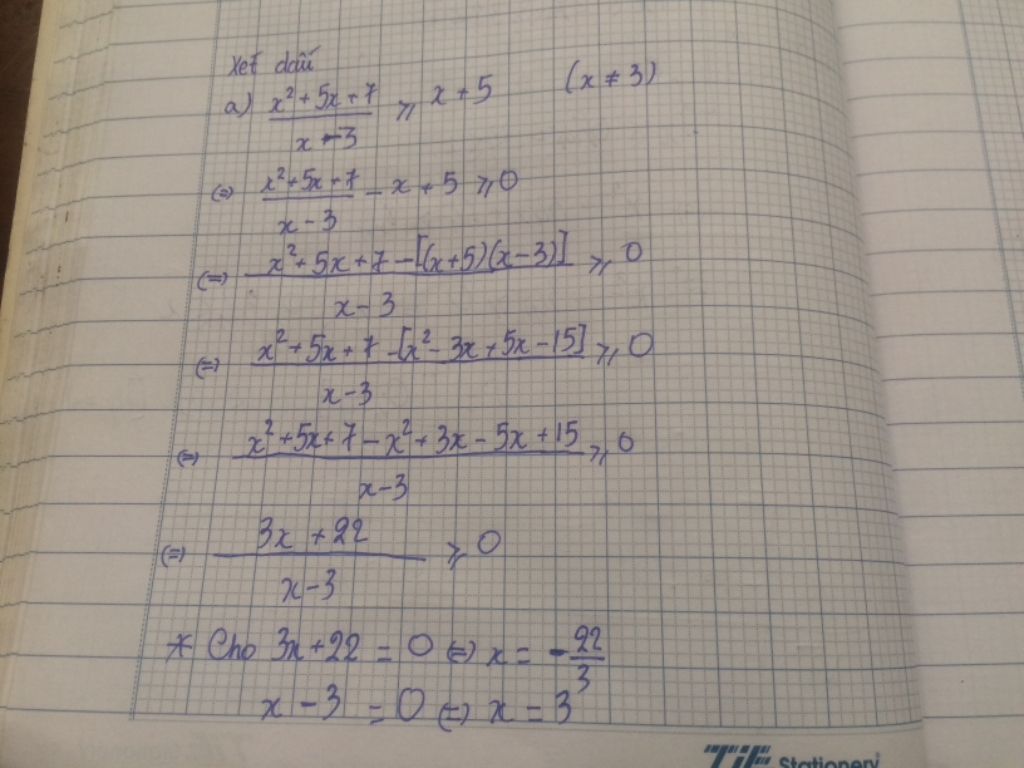 Xét dấu
a) \frac{x² + 5x + 7}{x - 3} ⩾ x + 5 (x ≠ 3)
(=) \frac{x² + 5x + 7}{x - 3} - x + 5 ⩾ 0
(=) \frac{x² + 5x + 7 - [(x+5)(x-3)]}{x - 3} ⩾ 0
(=) \frac{x² + 5x + 7 - [x² - 3x + 5x - 15]}{x - 3} ⩾ 0
(=) \frac{x² + 5x + 7 - x² + 3x - 5x + 15}{x - 3} ⩾ 0
(=) \frac{3x + 22}{x - 3} ⩾ 0
* Cho 3x + 22 = 0 (=) x = -\frac{22}{3}
x - 3 = 0 (=) x = 3
Stationery